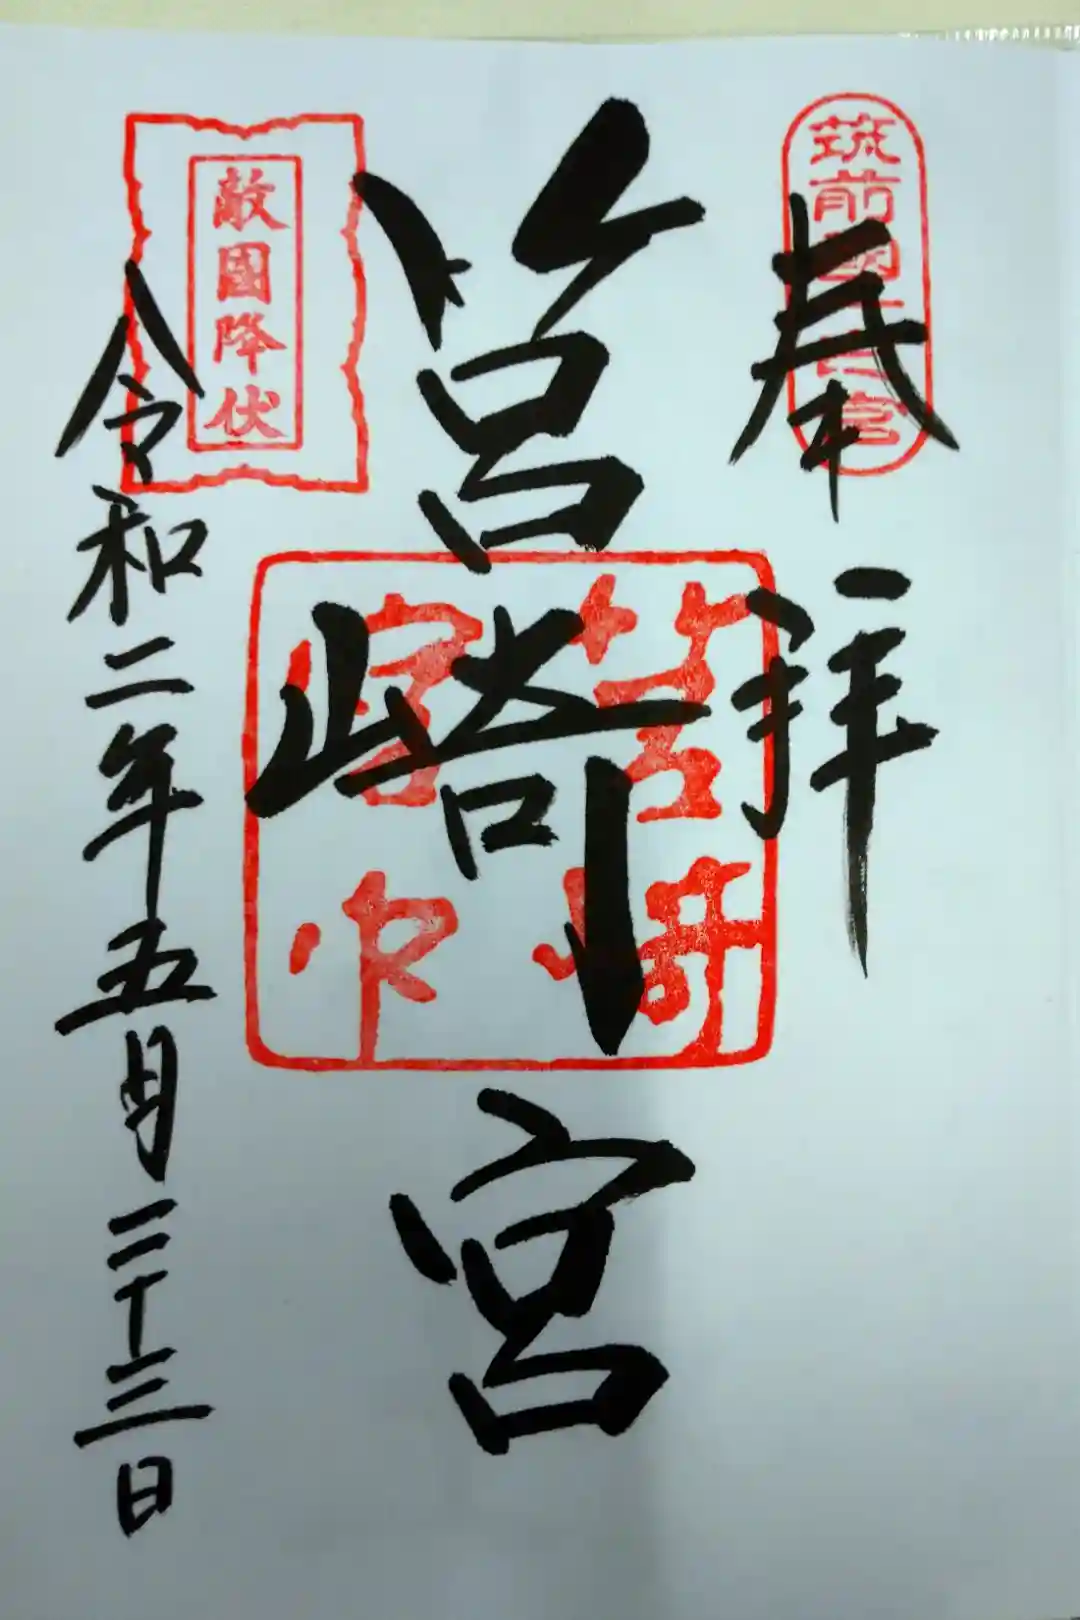 筑前國一之宮
奉拝
筥崎宮
敵國降伏
令和二年五月二十三日